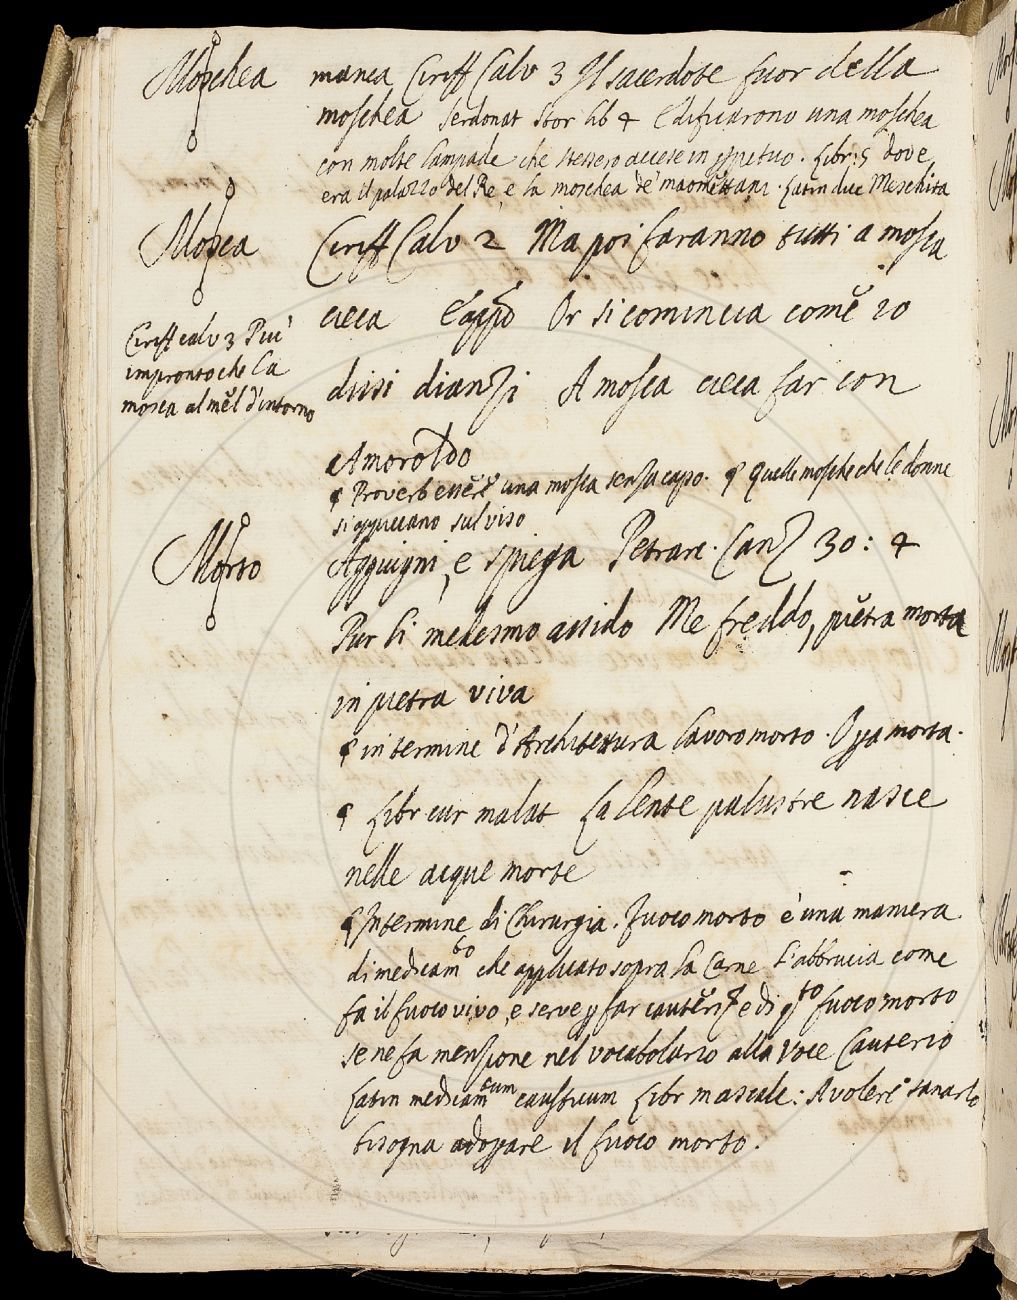 Moschea manca Ciriff Calv 3 Il sacerdote fuor della
moschea Serdonat Stor lib 4 Edificarono una moschea
con molte lampade che stessero accese in ppetuo. Libr: 5 dove
era il palazzo del Re, e la moschea de' maomettani. Latin dice Meschita
Mosca Ciriff Calv 2 Ma poi faranno tutti a mosca
cieca E app̄o Or si comincia come io
dissi dianzi A mosca cieca far con
Amoroldo
Ciriff calv 3 Più
impronto che la
mosca al mel d'intorno
¶ Proverb essere una mosca senza capo. ¶ Quelle mosche che le donne
si appiccano sul viso
Morto Aggiugni, e spiega Petrarc. Canz 30: 4
Pur lì medesmo assido Me freddo, pietra morta
in pietra viva
¶ in termine d'Architettura lavoro morto. Oppa morta.
¶ Libr cur malat La lente palustre nasce
nelle acque morte
¶ In termine di Chirurgia. Fuoco morto è una maniera
di medicamto che applicato sopra la carne l'abbrucia come
fa il fuoco vivo, e serve p far cauterj, e di qto fuoco morto
se ne fa menzione nel vocabolario alla voce Cauterio
Latin medicamtum causticum Libr mascalc: A volere sanarlo
bisogna adoppare il fuoco morto.